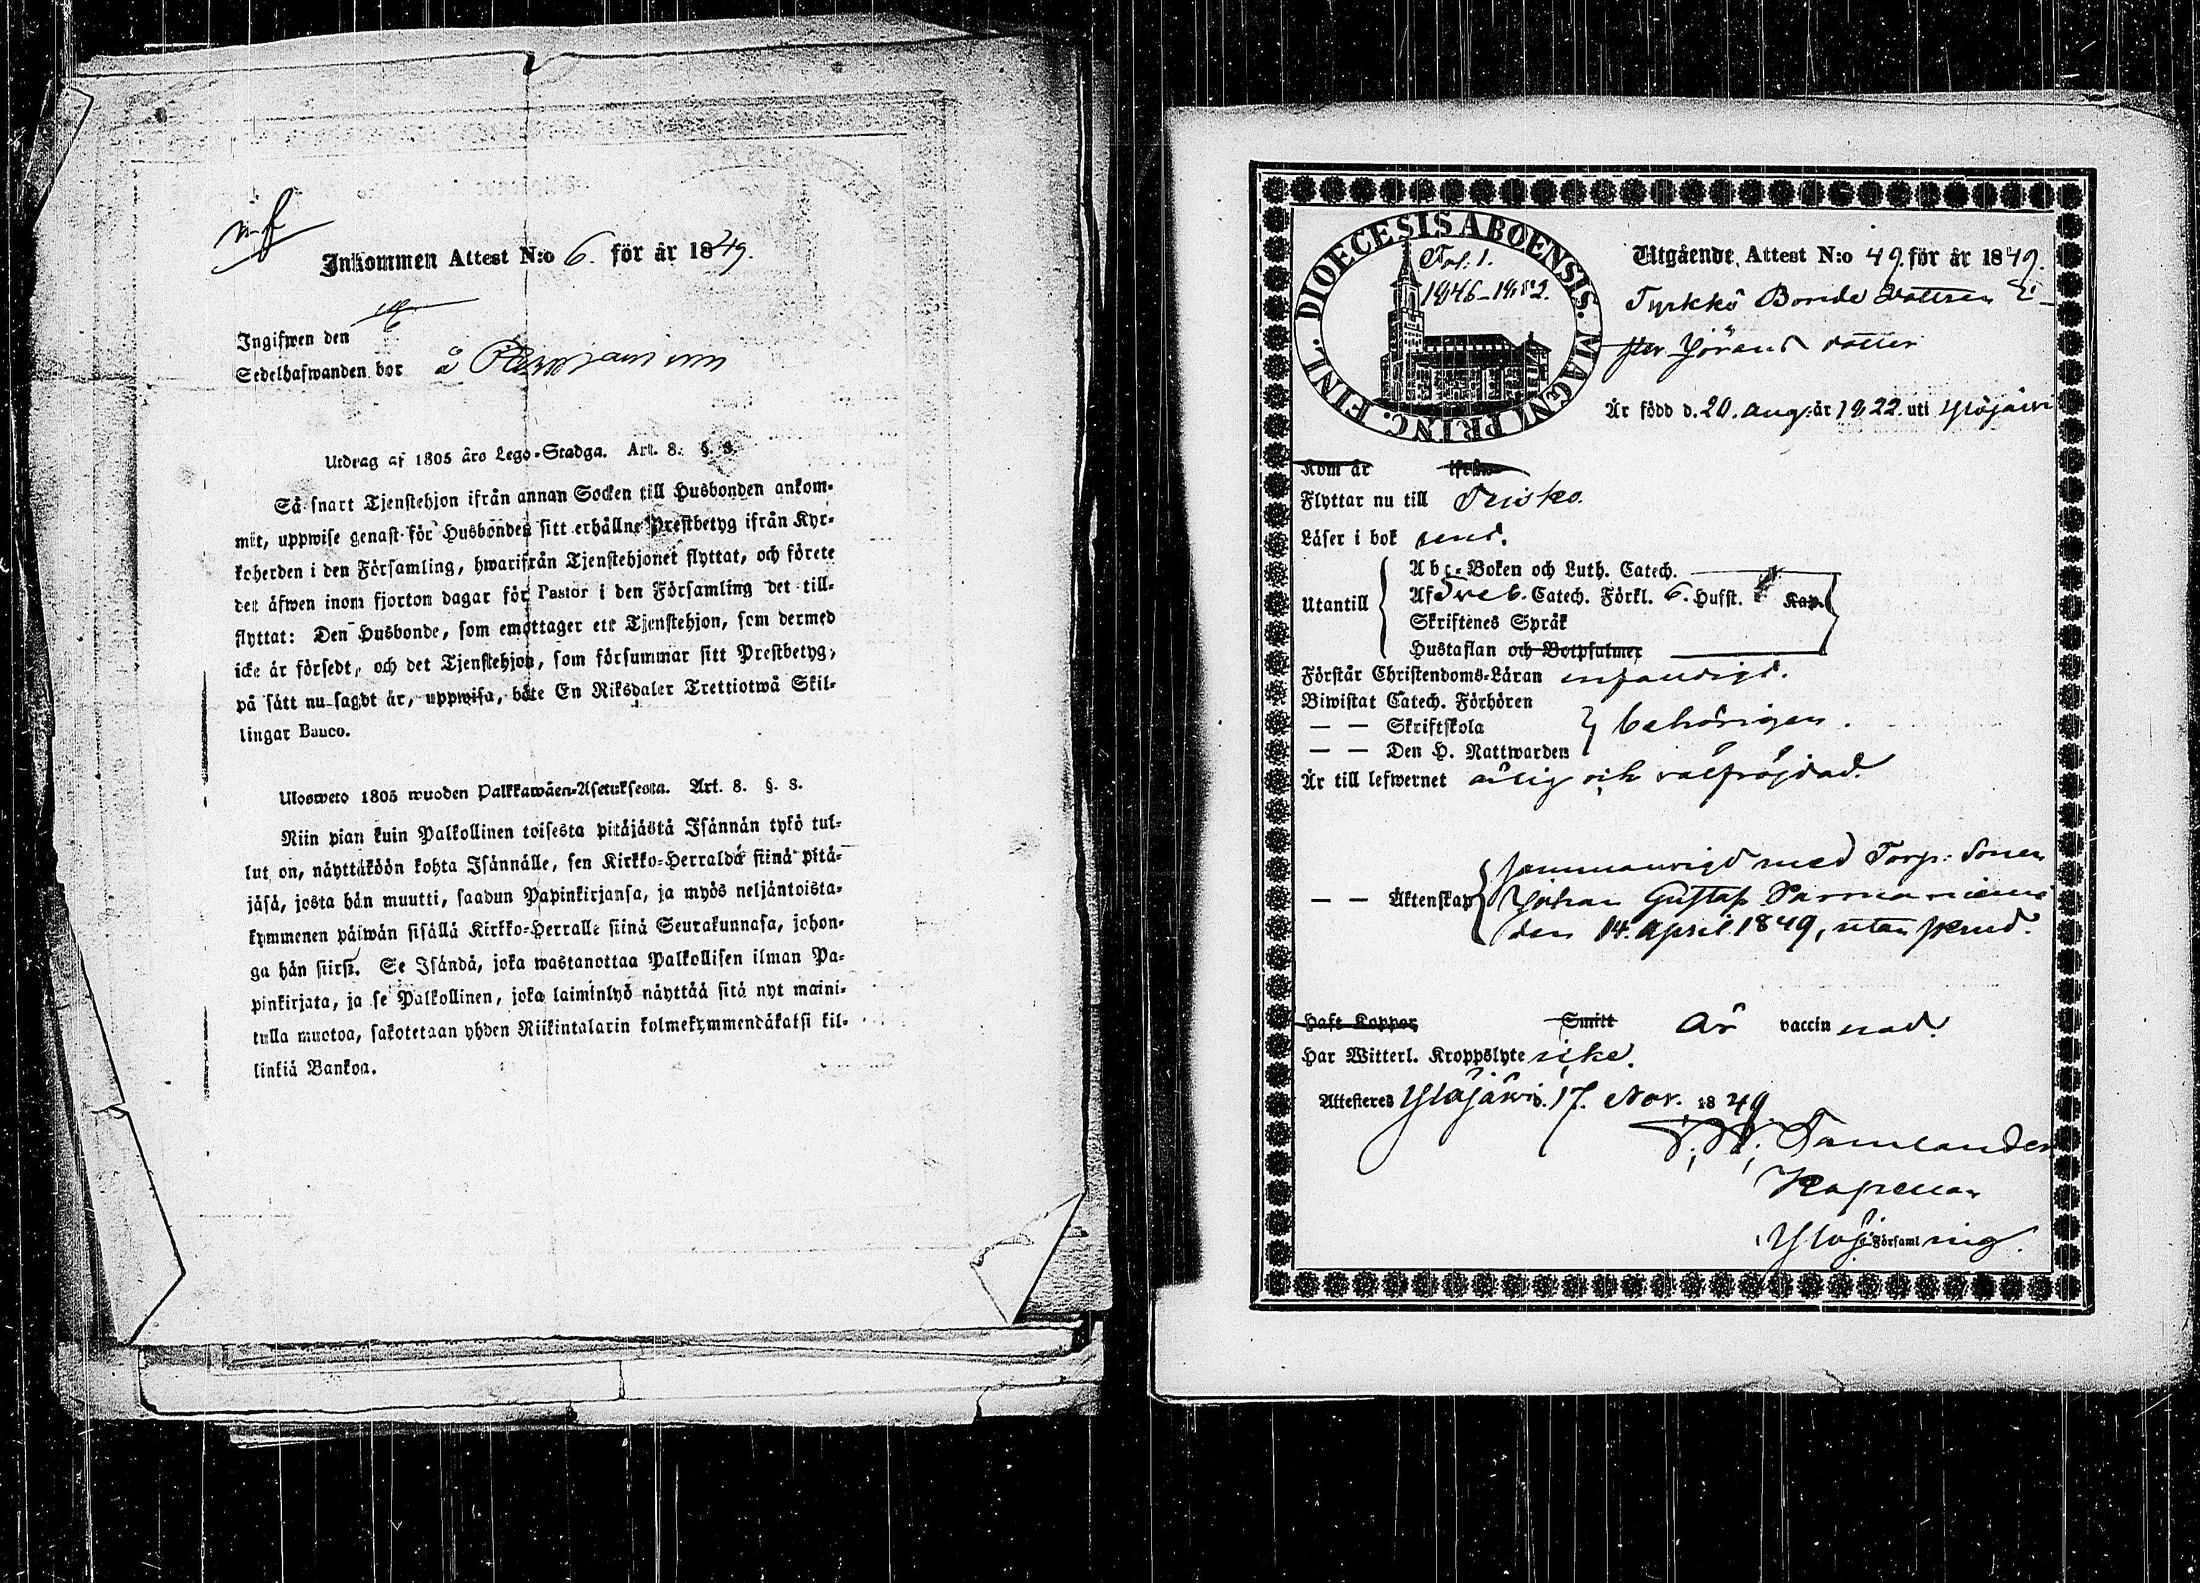 Inkommen Attest N:o 6. för år 1849.
Ingifwen den
Sedelhafwanden bor å
Utdrag af 1805 års Lego-Stadga. Art. 8. §. 3.
Så snart Tjenstehjon ifrån annan Socken till Husbonden ankom-
mit, uppwise genast för Husbonden sitt erhållne Prestbetyg ifrån Kyr-
koherden i den Församling, hwarifrån Tjenstehjonet flyttat, och förete
det äfwen inom fjorton dagar för Pastor i den Församling det till-
flyttat: Den Husbonde, som emottager ett Tjenstehjon, som dermed
icke är försedt, och det Tjenstehjon, som försummar sitt Prestbetyg,
på sätt nu sagdt är, uppwisa, böte En Riksdaler Trettiotwå Skil-
lingar Banco.
Ulosweto 1805 wuoden Palkkawäen-Asetuksesta. Art. 8. §. 3.
Niin pian kuin Palkollinen toisesta pitäjästä Isännän tykö tul-
lut on, näyttäköön kohta Isännälle, sen Kirkko-Herralda siinä pitä-
jäsä, josta hän muutti, saadun Papinkirjansa, ja myös neljäntoista-
kymmenen päiwän sisällä Kirkko-Herralle siinä Seurakunnasa, johon-
ga hän siirsi. Se Isändä, joka wastanottaa Palkollisen ilman Pa-
pinkirjata, ja se Palkollinen, joka laiminlyö näyttää sitä nyt maini-
tulla muotoa, sakotetaan yhden Riikintalarin kolmekymmendäkaksi kil-
linkiä Bankoa.
DIOECESIS ABOENSIS. MAGNI PRINC. FINL.
Fol: 1.
1846-1852.
Utgående Attest N:o 49. för år 1849.
Tyrkkö Bonde dottren E-
ster Jörans dotter
Är född d. 20. Aug. år 1822. uti Ylöjärvi
Kom år ifrån
Flyttar nu till
Läser i bok
Utantill
Abc-Boken och Luth. Catech.
Af Sveb. Catech. Förkl. 6. Hufst. Kap.
Skriftenes Språk
Hustaflan och Botpsalmer
Förstår Christendoms-Läran
Biwistat Catech. Förhören
— — Skriftskola
behörigen.
— — Den H. Nattwarden
Är till lefwernet ärlig och välfrejdad.
sammanvigd med Torp: Sonen
— — Äktenskap Johan Gustaf
den 14. April 1849, utan
Haft Koppor Smitt Är vaccinerad.
Har Witterl. Kroppslyte icke.
Attesteres Ylöjärvi d. 17. Nov. 1849
Kapellan
Ylöj. Församling.